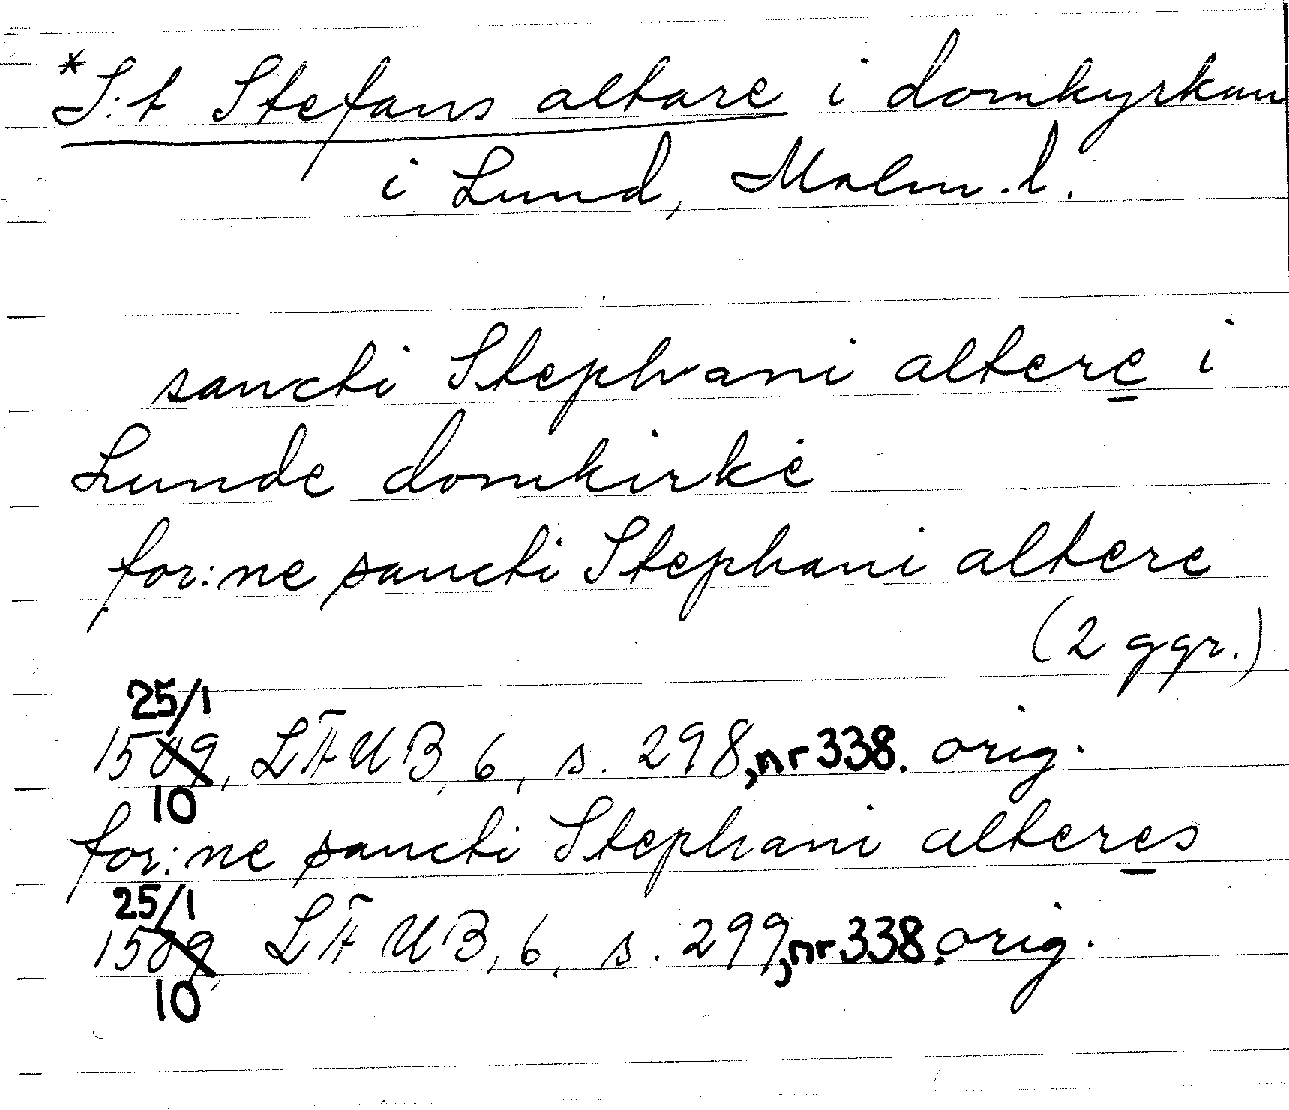 *S:t Stefans altare i domkyrkan
i Lund, Malm. l.
sancti Stephani altere i
Lunde domkirke
for:ne sancti Stephani altere
(2 ggr.)
25/1
1509, LÄUB, 6, s. 298, nr 338. orig.
10
for:ne sancti Stephani alteres
25/1
1509, LÄUB, 6, s. 299, nr 338. orig.
10